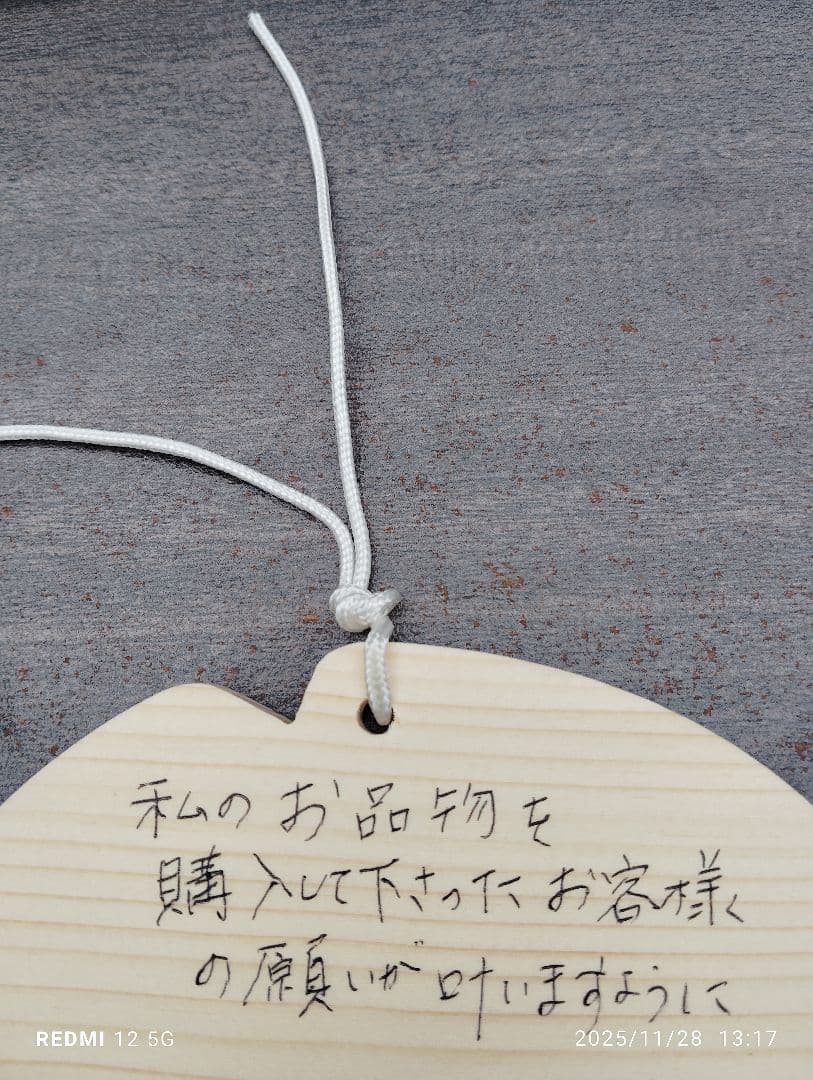 私のお品物を
購入して下さったお客様
の願いが叶いますように
REDMI 12 5G
2025/11/28 13:17